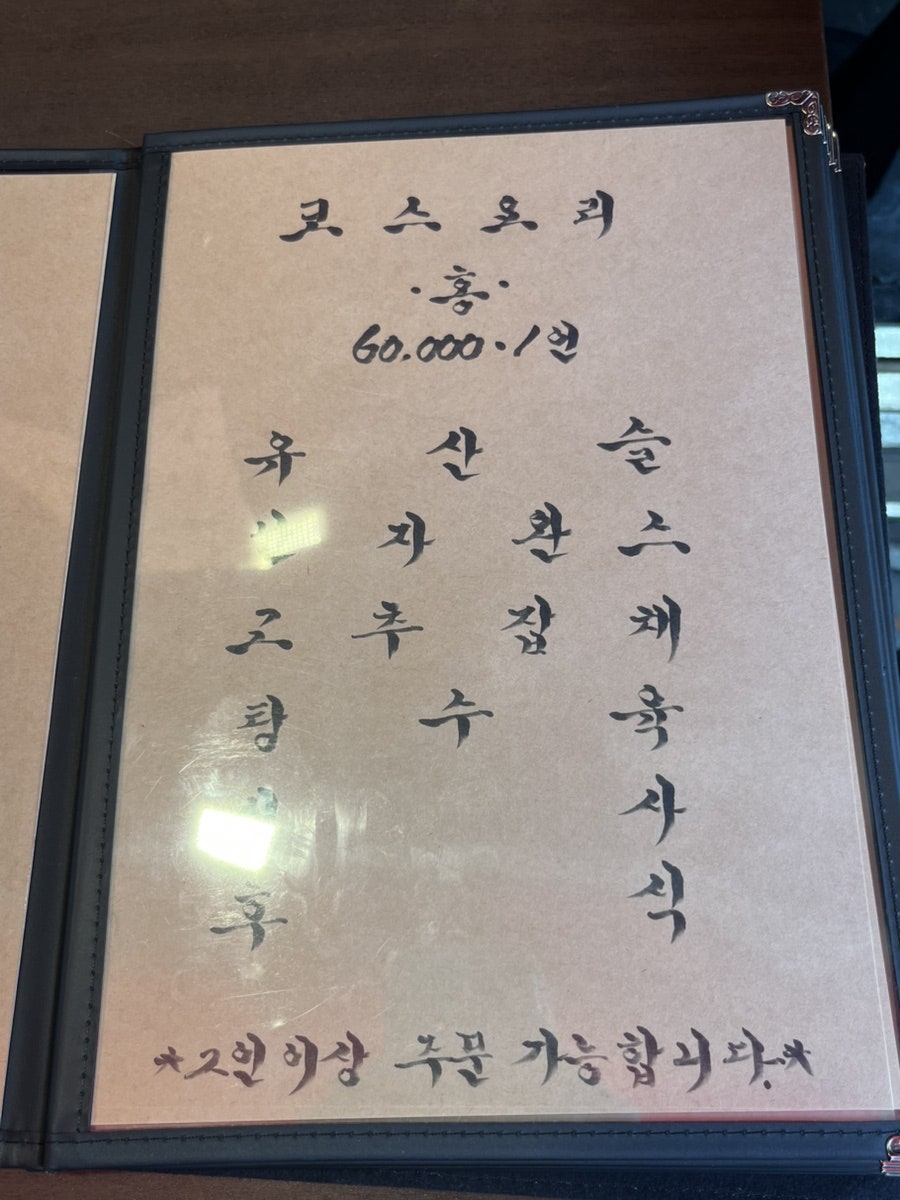 코 스 요 리
·홍·
60.000·/인
유 산 슬
난 자 완 스
고 추 잡 채
탕 수 육
사
후 식
*2인이상 주문 가능합니다.*